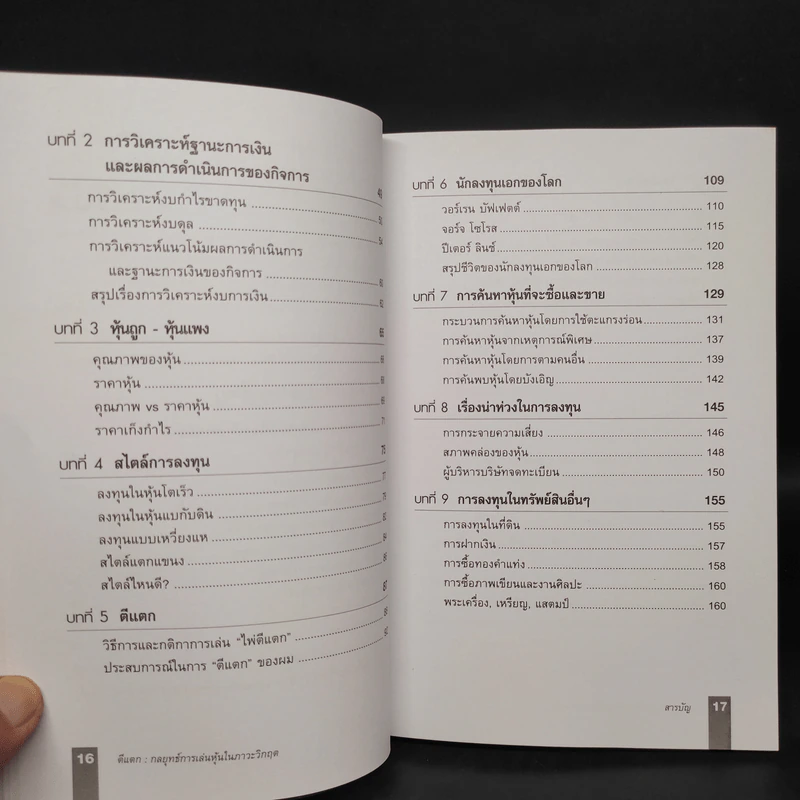 บทที่ 2 การวิเคราะห์ฐานะการเงิน
และผลการดำเนินการของกิจการ 49
การวิเคราะห์งบกำไรขาดทุน 50
การวิเคราะห์งบดุล 54
การวิเคราะห์แนวโน้มผลการดำเนินการ
และฐานะการเงินของกิจการ 60
สรุปเรื่องการวิเคราะห์งบการเงิน 62
บทที่ 3 หุ้นถูก - หุ้นแพง 65
คุณภาพของหุ้น
ราคาหุ้น
คุณภาพ vs ราคาหุ้น
ราคาเก็งกำไร
บทที่ 4 สไตล์การลงทุน 75
ลงทุนในหุ้นโตเร็ว 77
ลงทุนในหุ้นแบกับดิน 79
ลงทุนแบบเหวี่ยงแห
สไตล์แตกแขนง
สไตล์ไหนดี?
บทที่ 5 ตีแตก 87
วิธีการและกติกาการเล่น "ไพ่ตีแตก"
ประสบการณ์ในการ "ตีแตก" ของผม
16 ตีแตก : กลยุทธ์การเล่นหุ้นในภาวะวิกฤต
บทที่ 6 นักลงทุนเอกของโลก 109
วอร์เรน บัฟเฟตต์ 110
จอร์จ โซโรส 115
ปีเตอร์ ลินช์ 120
สรุปชีวิตของนักลงทุนเอกของโลก 128
บทที่ 7 การค้นหาหุ้นที่จะซื้อและขาย 129
กระบวนการค้นหาหุ้นโดยการใช้ตะแกรงร่อน 131
การค้นหาหุ้นจากเหตุการณ์พิเศษ 137
การค้นหาหุ้นโดยการตามคนอื่น 139
การค้นพบหุ้นโดยบังเอิญ 142
บทที่ 8 เรื่องน่าห่วงในการลงทุน 145
การกระจายความเสี่ยง 146
สภาพคล่องของหุ้น 148
ผู้บริหารบริษัทจดทะเบียน 150
บทที่ 9 การลงทุนในทรัพย์สินอื่นๆ 155
การลงทุนในที่ดิน 155
การฝากเงิน 157
การซื้อทองคำแท่ง 158
การซื้อภาพเขียนและงานศิลปะ 160
พระเครื่อง, เหรียญ, แสตมป์ 160
สารบัญ 17